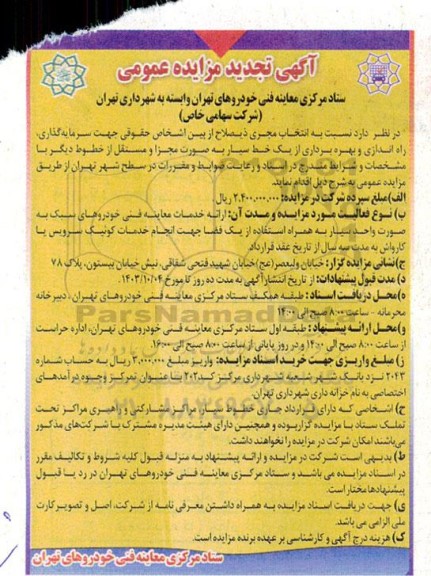 آگهی تجدید مزایده عمومی
ستاد مرکزی معاینه فنی خودروهای تهران وابسته به شهرداری تهران
(شرکت سهامی خاص)
در نظر دارد نسبت به انتخاب مجری ذیصلاح از بین اشخاص حقوقی جهت سرمایه‌گذاری،
راه اندازی و بهره برداری از یک خط سیار به صورت مجزا و مستقل از خطوط دیگر با
مشخصات و شرایط مندرج در اسناد و رعایت ضوابط و مقررات در سطح شهر تهران از طریق
مزایده عمومی به شرح ذیل اقدام نماید.
الف) مبلغ سپرده شرکت در مزایده: ۲،۴۰۰،۰۰۰،۰۰۰ ریال
ب) نوع فعالیت مورد مزایده و مدت آن: ارائه خدمات معاینه فنی خودروهای سبک به
صورت واحد سیار به همراه استفاده از یک فضا جهت انجام خدمات کوئیک سرویس یا
کارواش به مدت سه سال از تاریخ عقد قرارداد
ج) نشانی مزایده گزار: خیابان ولیعصر(عج) خیابان شهید فتحی شقاقی، نبش خیابان بیستون، پلاک ۷۸
د) مدت قبول پیشنهادات: از تاریخ انتشار آگهی به مدت ده روز تا مورخ ۱۴۰۳/۱۰/۰۴
ه) محل دریافت اسناد: طبقه همکف ستاد مرکزی معاینه فنی خودروهای تهران، دبیرخانه
محرمانه - ساعت ۸:۰۰ صبح الی ۱۴:۰۰
و) محل ارائه پیشنهاد: طبقه اول ستاد مرکزی معاینه فنی خودروهای تهران، اداره حراست
از ساعت ۸:۰۰ صبح الی ۱۴:۰۰ و در روز پایانی از ساعت ۸:۰۰ صبح الی ۱۶:۰۰
ز) مبلغ واریزی جهت خرید اسناد مزایده: واریز مبلغ ۳،۰۰۰،۰۰۰ ریال به حساب شماره
۲۰۴۳ نزد بانک شهر شعبه شهرداری مرکز کد ۲۰۳ تحت عنوان تمرکز وجوه درآمدهای
اختصاصی به نام خزانه داری شهرداری تهران.
ح) اشخاصی که دارای قرارداد جاری خطوط سیار، مراکز مشارکتی و راهبری مراکز تحت
تملک ستاد با مزایده گزار بوده و همچنین دارای هیئت مدیره مشترک با شرکت‌های مذکور
می‌باشند امکان شرکت در مزایده را نخواهند داشت.
ط) بدیهی است شرکت در مزایده و ارائه پیشنهاد به منزله قبول کلیه شروط و تکالیف مقرر
در اسناد مزایده می باشد و ستاد مرکزی معاینه فنی خودروهای تهران در رد یا قبول
پیشنهادها مختار است.
ی) جهت دریافت اسناد مزایده به همراه داشتن معرفی نامه از شرکت، اصل و تصویر کارت
ملی الزامی می باشد.
ک) هزینه درج آگهی و کارشناسی بر عهده برنده مزایده است.
ستاد مرکزی معاینه فنی خودروهای تهران